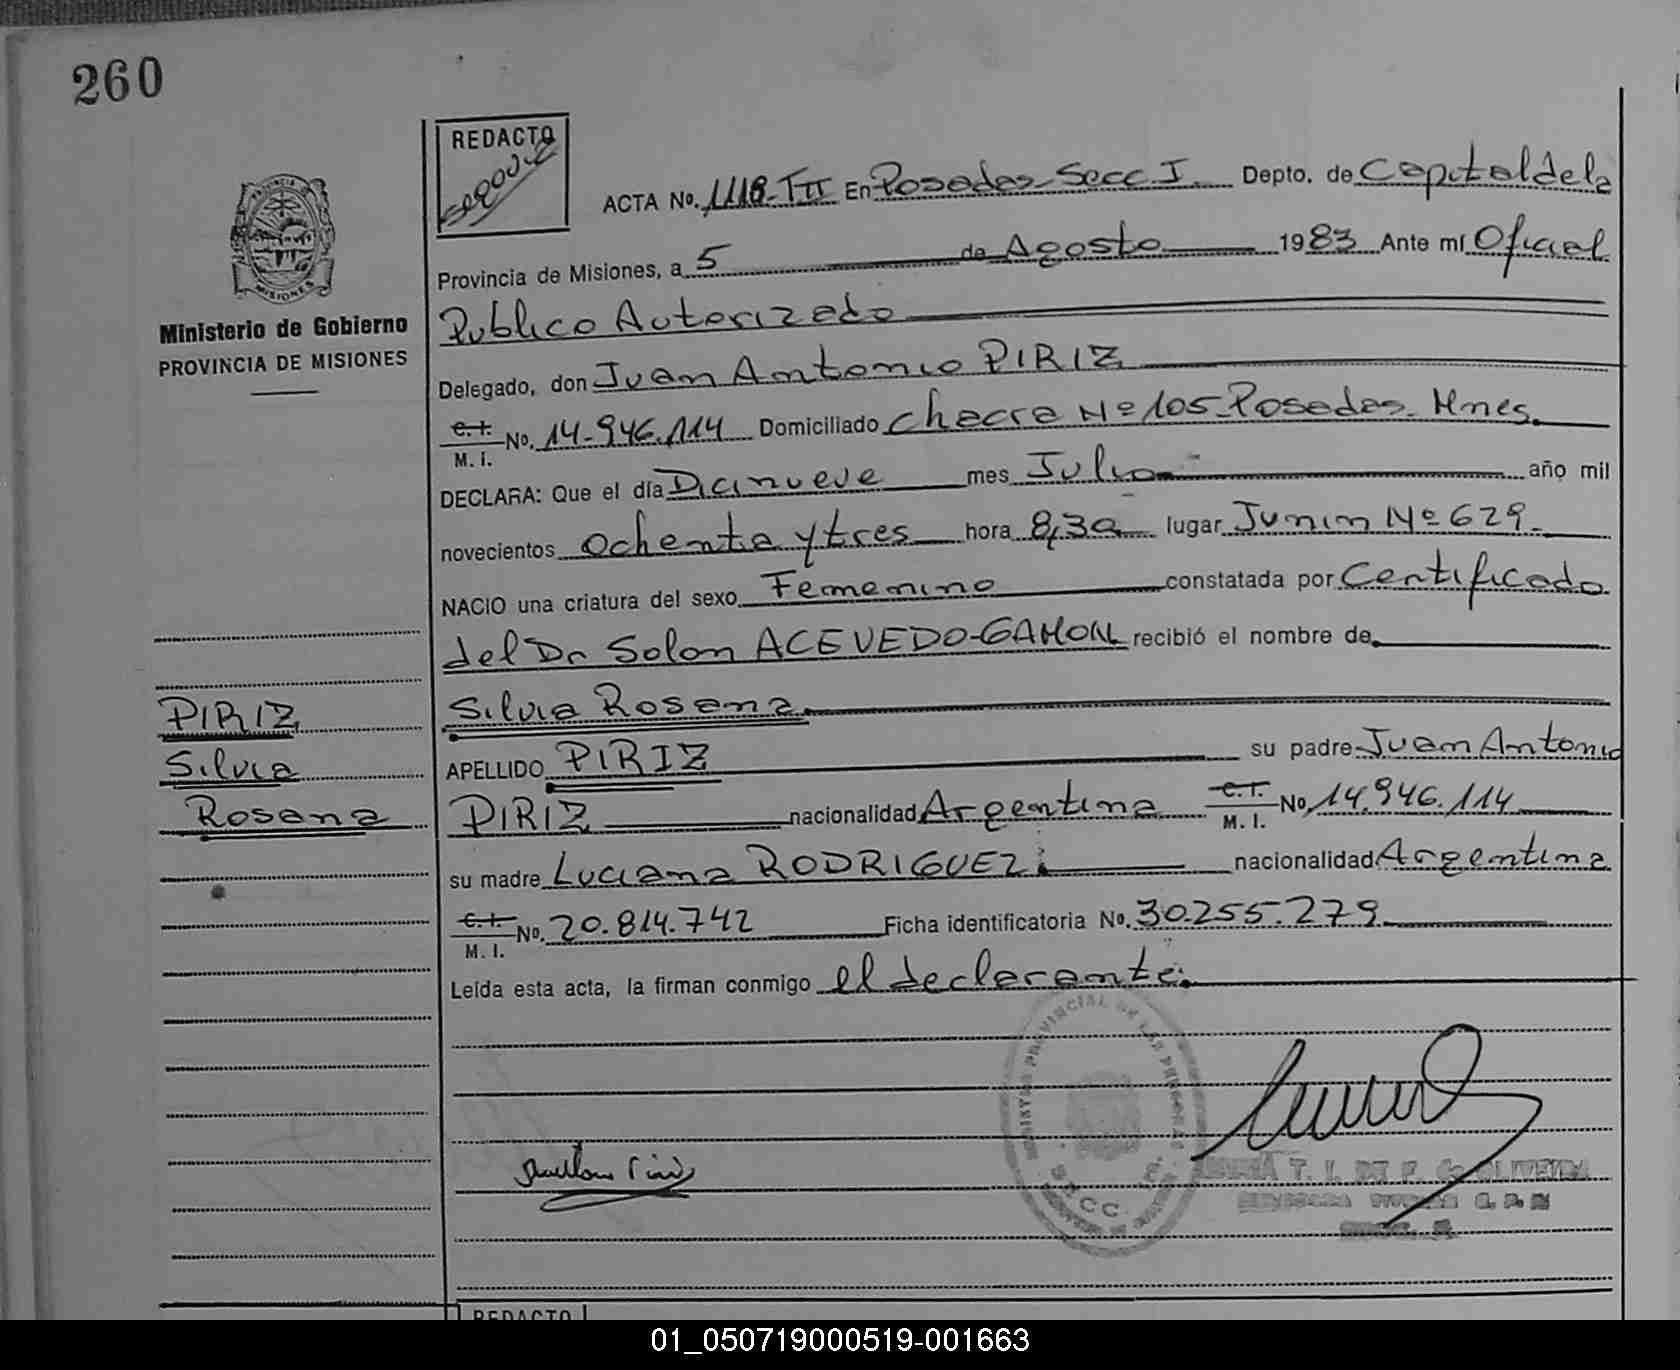 260
REDACTO
ACTA No. 1118-TII En Posadas Secc I. Depto. de Capital de la
Provincia de Misiones, a 5 de Agosto 1983 Ante mí Oficial
Publico Autorizado
Delegado, don Juan Antonio PIRIZ
C. I.
M. I. No. 14.946.114 Domiciliado Chacra Nº 105-Posadas-Mnes.
DECLARA: Que el día Dicinueve mes Julio año mil
novecientos ochenta y tres hora 8,30 lugar Junin Nº 629.
NACIO una criatura del sexo Femenino constatada por Certificado
del Dr Solon ACEVEDO-GAMON recibió el nombre de
Silvia Rosana
APELLIDO PIRIZ su padre Juan Antonio
PIRIZ nacionalidad Argentina C. I.
M. I. No 14.946.114
su madre Luciana RODRIGUEZ. nacionalidad Argentina
C. I.
M. I. No. 20.814.742 Ficha identificatoria No. 30.255.279
Leída esta acta, la firman conmigo el declarante.
PROVINCIA DE
MISIONES
Ministerio de Gobierno
PROVINCIA DE MISIONES
PIRIZ
Silvia
Rosana
REGISTRO PROVINCIAL DE LAS PERSONAS
SECC.
REDACTO
01_050719000519-001663